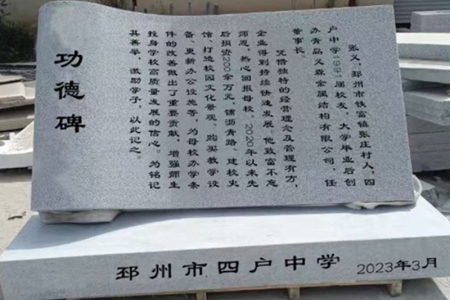 功德碑
张义，邳州市铁富镇张庄村人，四
户中学1991届校友，大学毕业后创
办青岛义森金属结构有限公司，任
董事长。
凭借独特的经营理念及管理有方，
企业得到持续快速发展，他致富不忘
师恩，热心回报母校，2020年以来先
后捐资200余万元，铺沥青路、建校史
馆、打造校园文化景观、购买教学设
备、更新办公设施等，为母校办学条
件的改善做出了重要贡献，增强师生
投身学校高质量发展的信心。为铭记
其善举，激励学子，以此记之。
邳州市四户中学 2023年3月